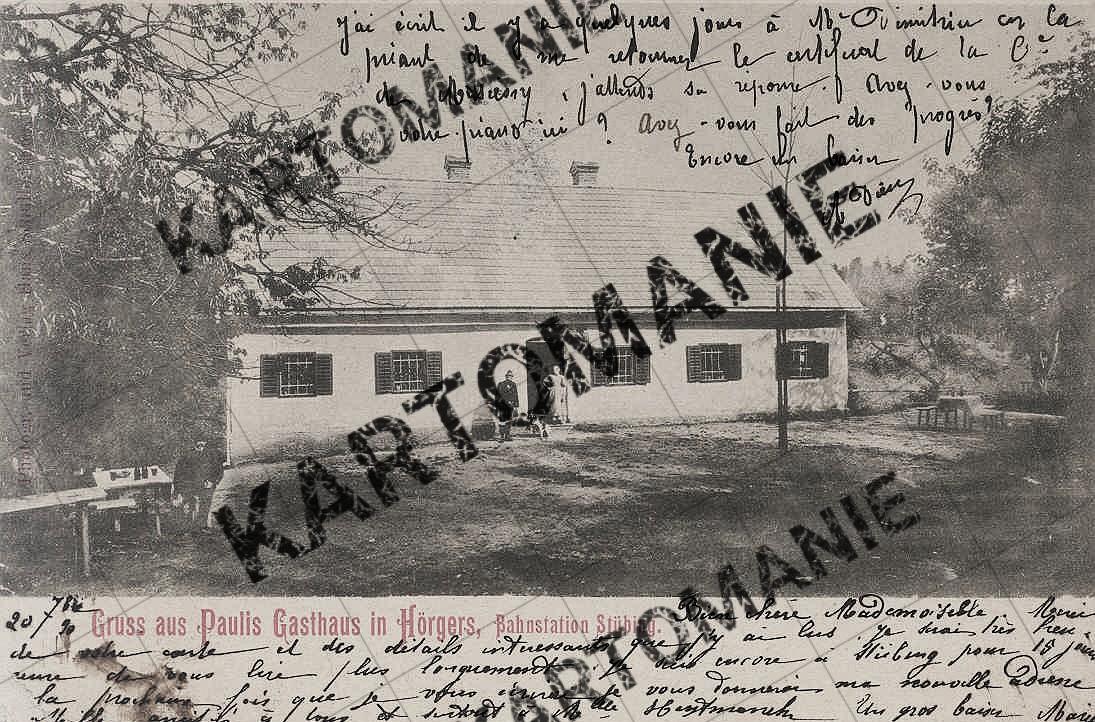 j'ai écrit il y a quelques jours à Mr Dimitriu en la
priant de me retourner le certificat de la Cie
de , j'attends sa réponse. Avez-vous
votre piano ici ? Avez-vous fait des progrès?
Encore un baiser
KARTOMANIE
KARTOMANIE
KARTOMANIE
KARTOMANIE
Gruss aus Paulis Gasthaus in Hörgers, Bahnstation Stübing.
20/7
Bien chère Mademoiselle. Merci
de votre carte et des détails intéressants que j'y ai lus. Je serais très heu-
reuse de vous lire plus longuement. Je suis encore à Stübing pour 15 jours
la prochaine fois que je vous écrirai je vous donnerai ma nouvelle adresse
Mille à tous et surtout à Mlle Un gros baiser